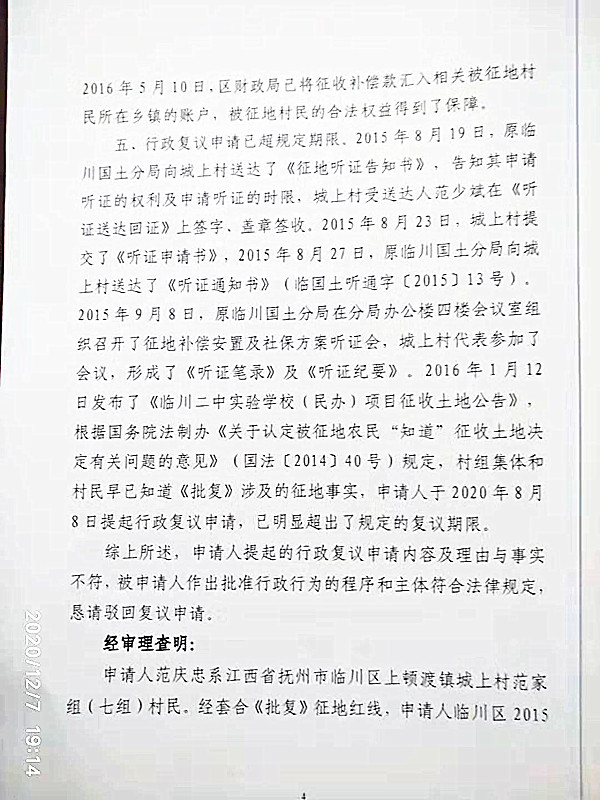 2016 年 5 月 10 日,区财政局已将征收补偿款汇入相关被征地村
民所在乡镇的账户，被征地村民的合法权益得到了保障。
五、行政复议申请已超规定期限。2015 年 8 月 19 日，原临
川国土分局向城上村送达了《征地听证告知书》，告知其申请
听证的权利及申请听证的时限，城上村受送达人范少斌在《听
证送达回证》上签字、盖章签收。2015 年 8 月 23 日，城上村提
交了《听证申请书》，2015 年 8 月 27 日，原临川国土分局向城
上村送达了《听证通知书》（临国土听通字〔2015〕13 号）。
2015 年 9 月 8 日，原临川国土分局在分局办公楼四楼会议室组
织召开了征地补偿安置及社保方案听证会，城上村代表参加了
会议，形成了《听证笔录》及《听证纪要》。2016 年 1 月 12
日发布了《临川二中实验学校（民办）项目征收土地公告》，
根据国务院法制办《关于认定被征地农民“知道”征收土地决
定有关问题的意见》（国法〔2014〕40 号）规定，村组集体和
村民早已知道《批复》涉及的征地事实，申请人于 2020 年 8 月
8 日提起行政复议申请，已明显超出了规定的复议期限。
综上所述，申请人提起的行政复议申请内容及理由与事实
不符，被申请人作出批准行政行为的程序和主体符合法律规定，
恳请驳回复议申请。
经审理查明：
申请人范庆忠系江西省抚州市临川区上顿渡镇城上村范家
组（七组）村民。经套合《批复》征地红线，申请人临川区 2015
4
2020/12/7 19:14